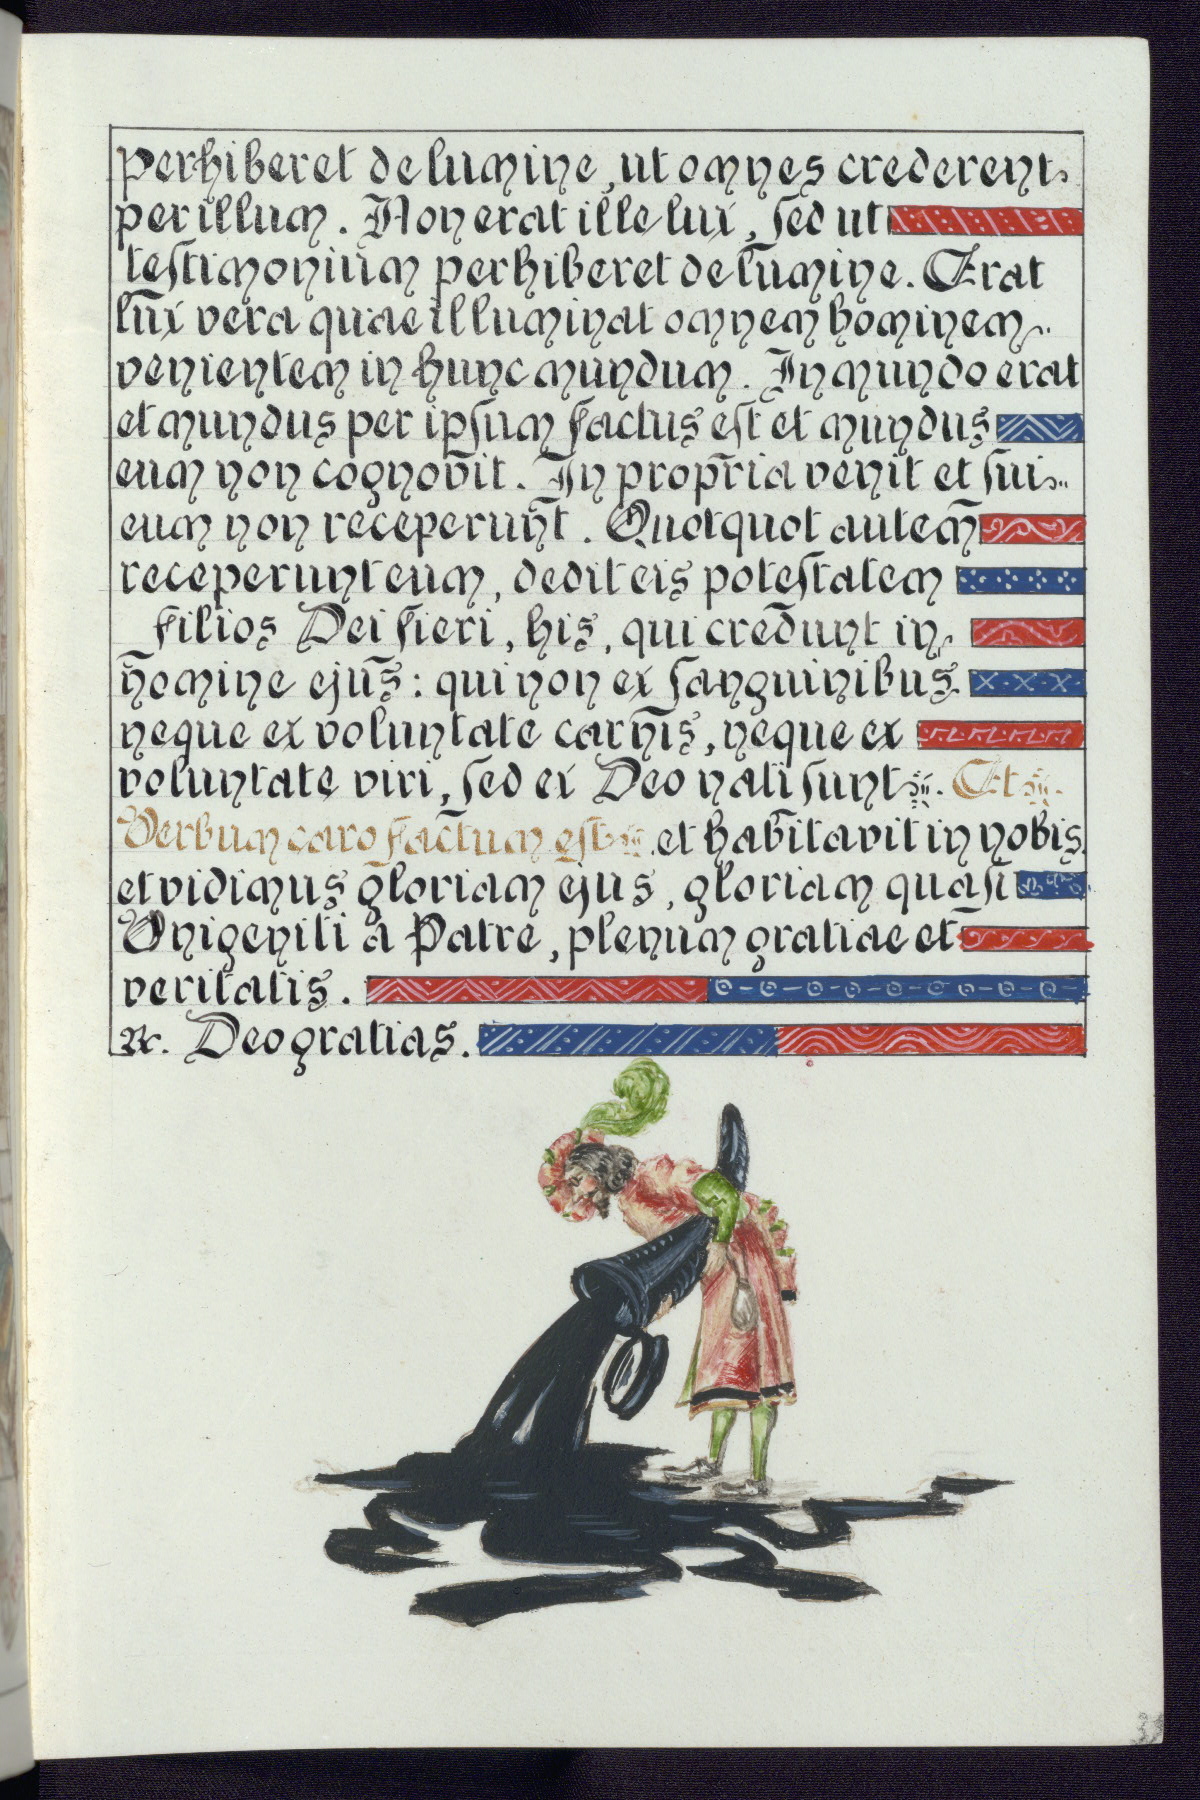 perhiberet de lumine, ut omnes crederent
per illum. Non erat ille lux, sed ut
testimonium perhiberet de lumine. Erat
lux vera quae illuminat omnem hominem
venientem in hunc mundum. In mundo erat
et mundus per ipsum factus est et mundus
eum non cognovit. In propria venit et sui
eum non receperunt. Quotquot autem
receperunt eum, dedit eis potestatem
filios Dei fieri, his, qui credunt in
nomine ejus: qui non ex sanguinibus
neque ex voluntate carnis, neque ex
voluntate viri, sed ex Deo nati sunt. Et
Verbum caro factum est et habitavit in nobis
et vidimus gloriam ejus, gloriam quasi
Unigeniti a Patre, plenum gratiae et
veritatis.
℟. Deo gratias.